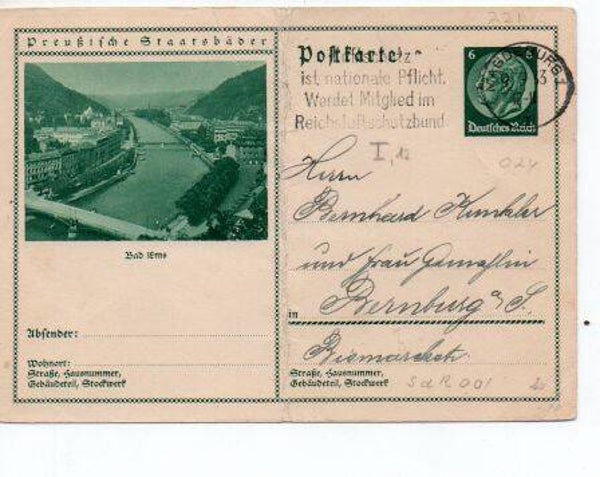 221
Preußische Staatsbäder
Postkarte
6 6
ist nationale Pflicht.
Werdet Mitglied im
Reichsluftschutzbund
Deutsches Reich
I,12
024
Herrn
Bernhard Kunkler
und Frau Gemahlin
Bad Ems
in Bernburg a/S.
Absender:
Wohnort:
Straße, Hausnummer,
Gebäudeteil, Stockwerk
Bismarckstr.
Straße, Hausnummer,
Gebäudeteil, Stockwerk
SdR 001